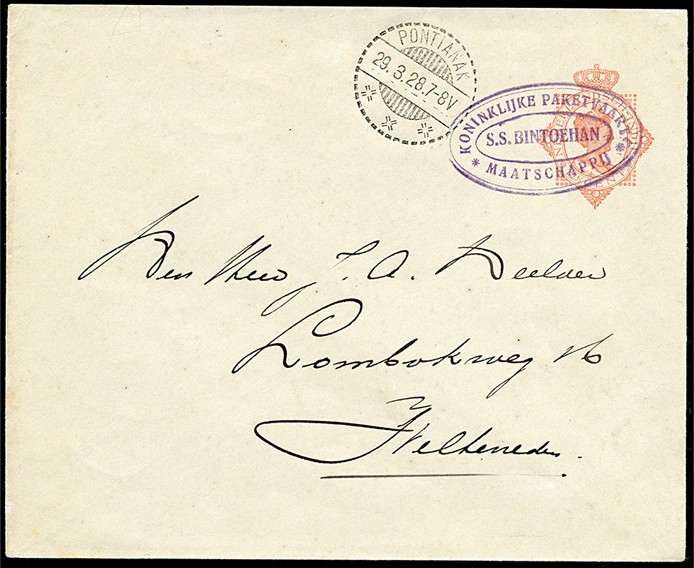 PONTIANAK
29.3.28.7-8V
KONINKLIJKE PAKETVAART
S.S. BINTOEHAN
* MAATSCHAPPIJ *
Den Heer J. A.
Lombokweg 16
Weltevreden.